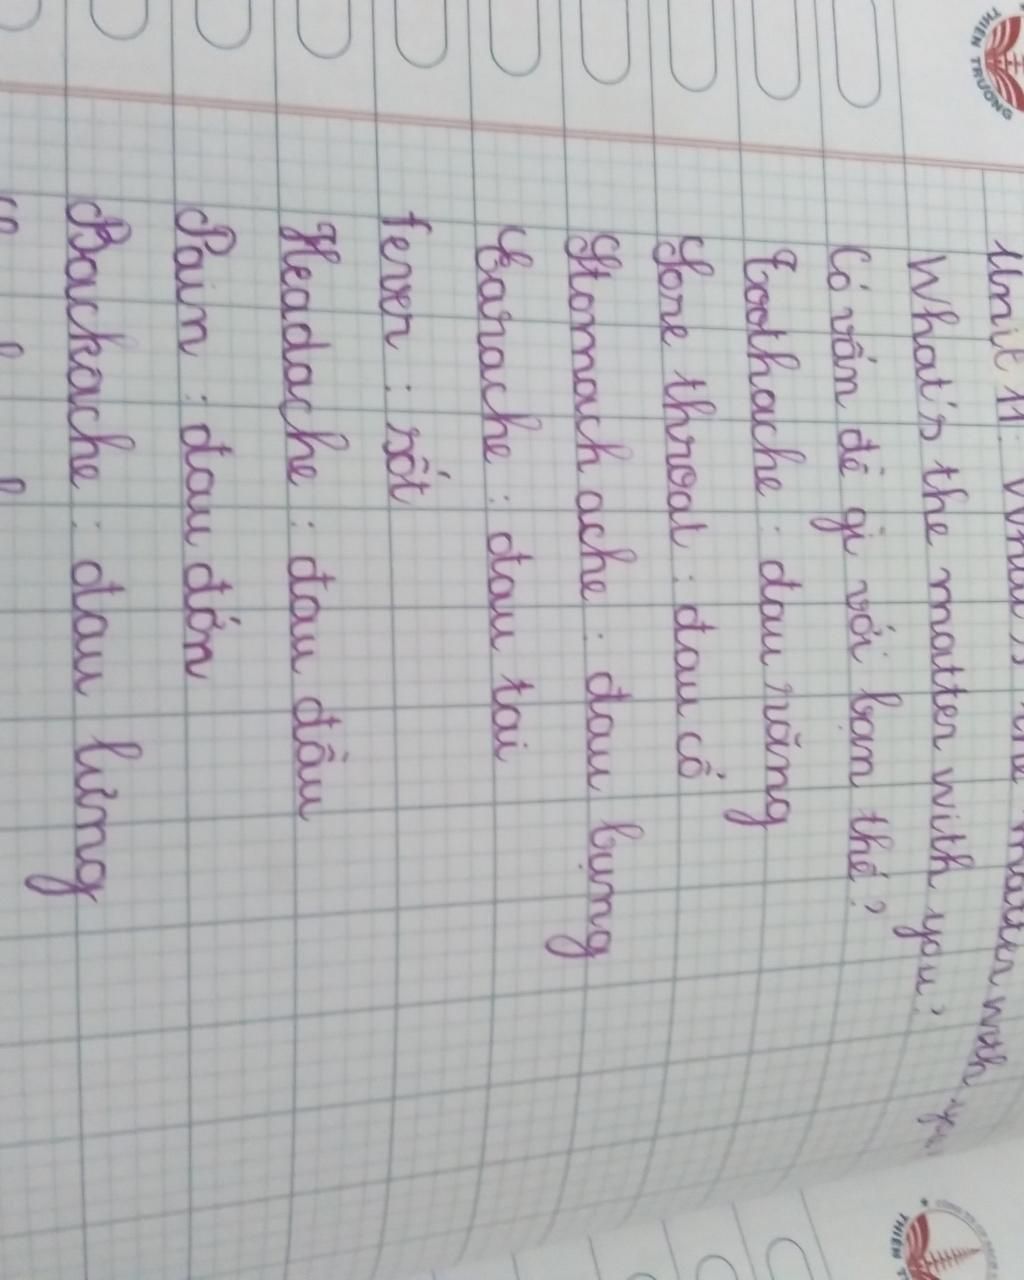 THIÊN TRƯỜNG
Unit 11: What's the matter with you
What's the matter with you?
Có vấn đề gì với bạn thế?
Toothache: đau răng
Sore throat: đau cổ
Stomach ache: đau bụng
Earache: đau tai
fever: sốt
Headache: đau đầu
Pain: đau đớn
Backache: đau lưng
THIÊN T